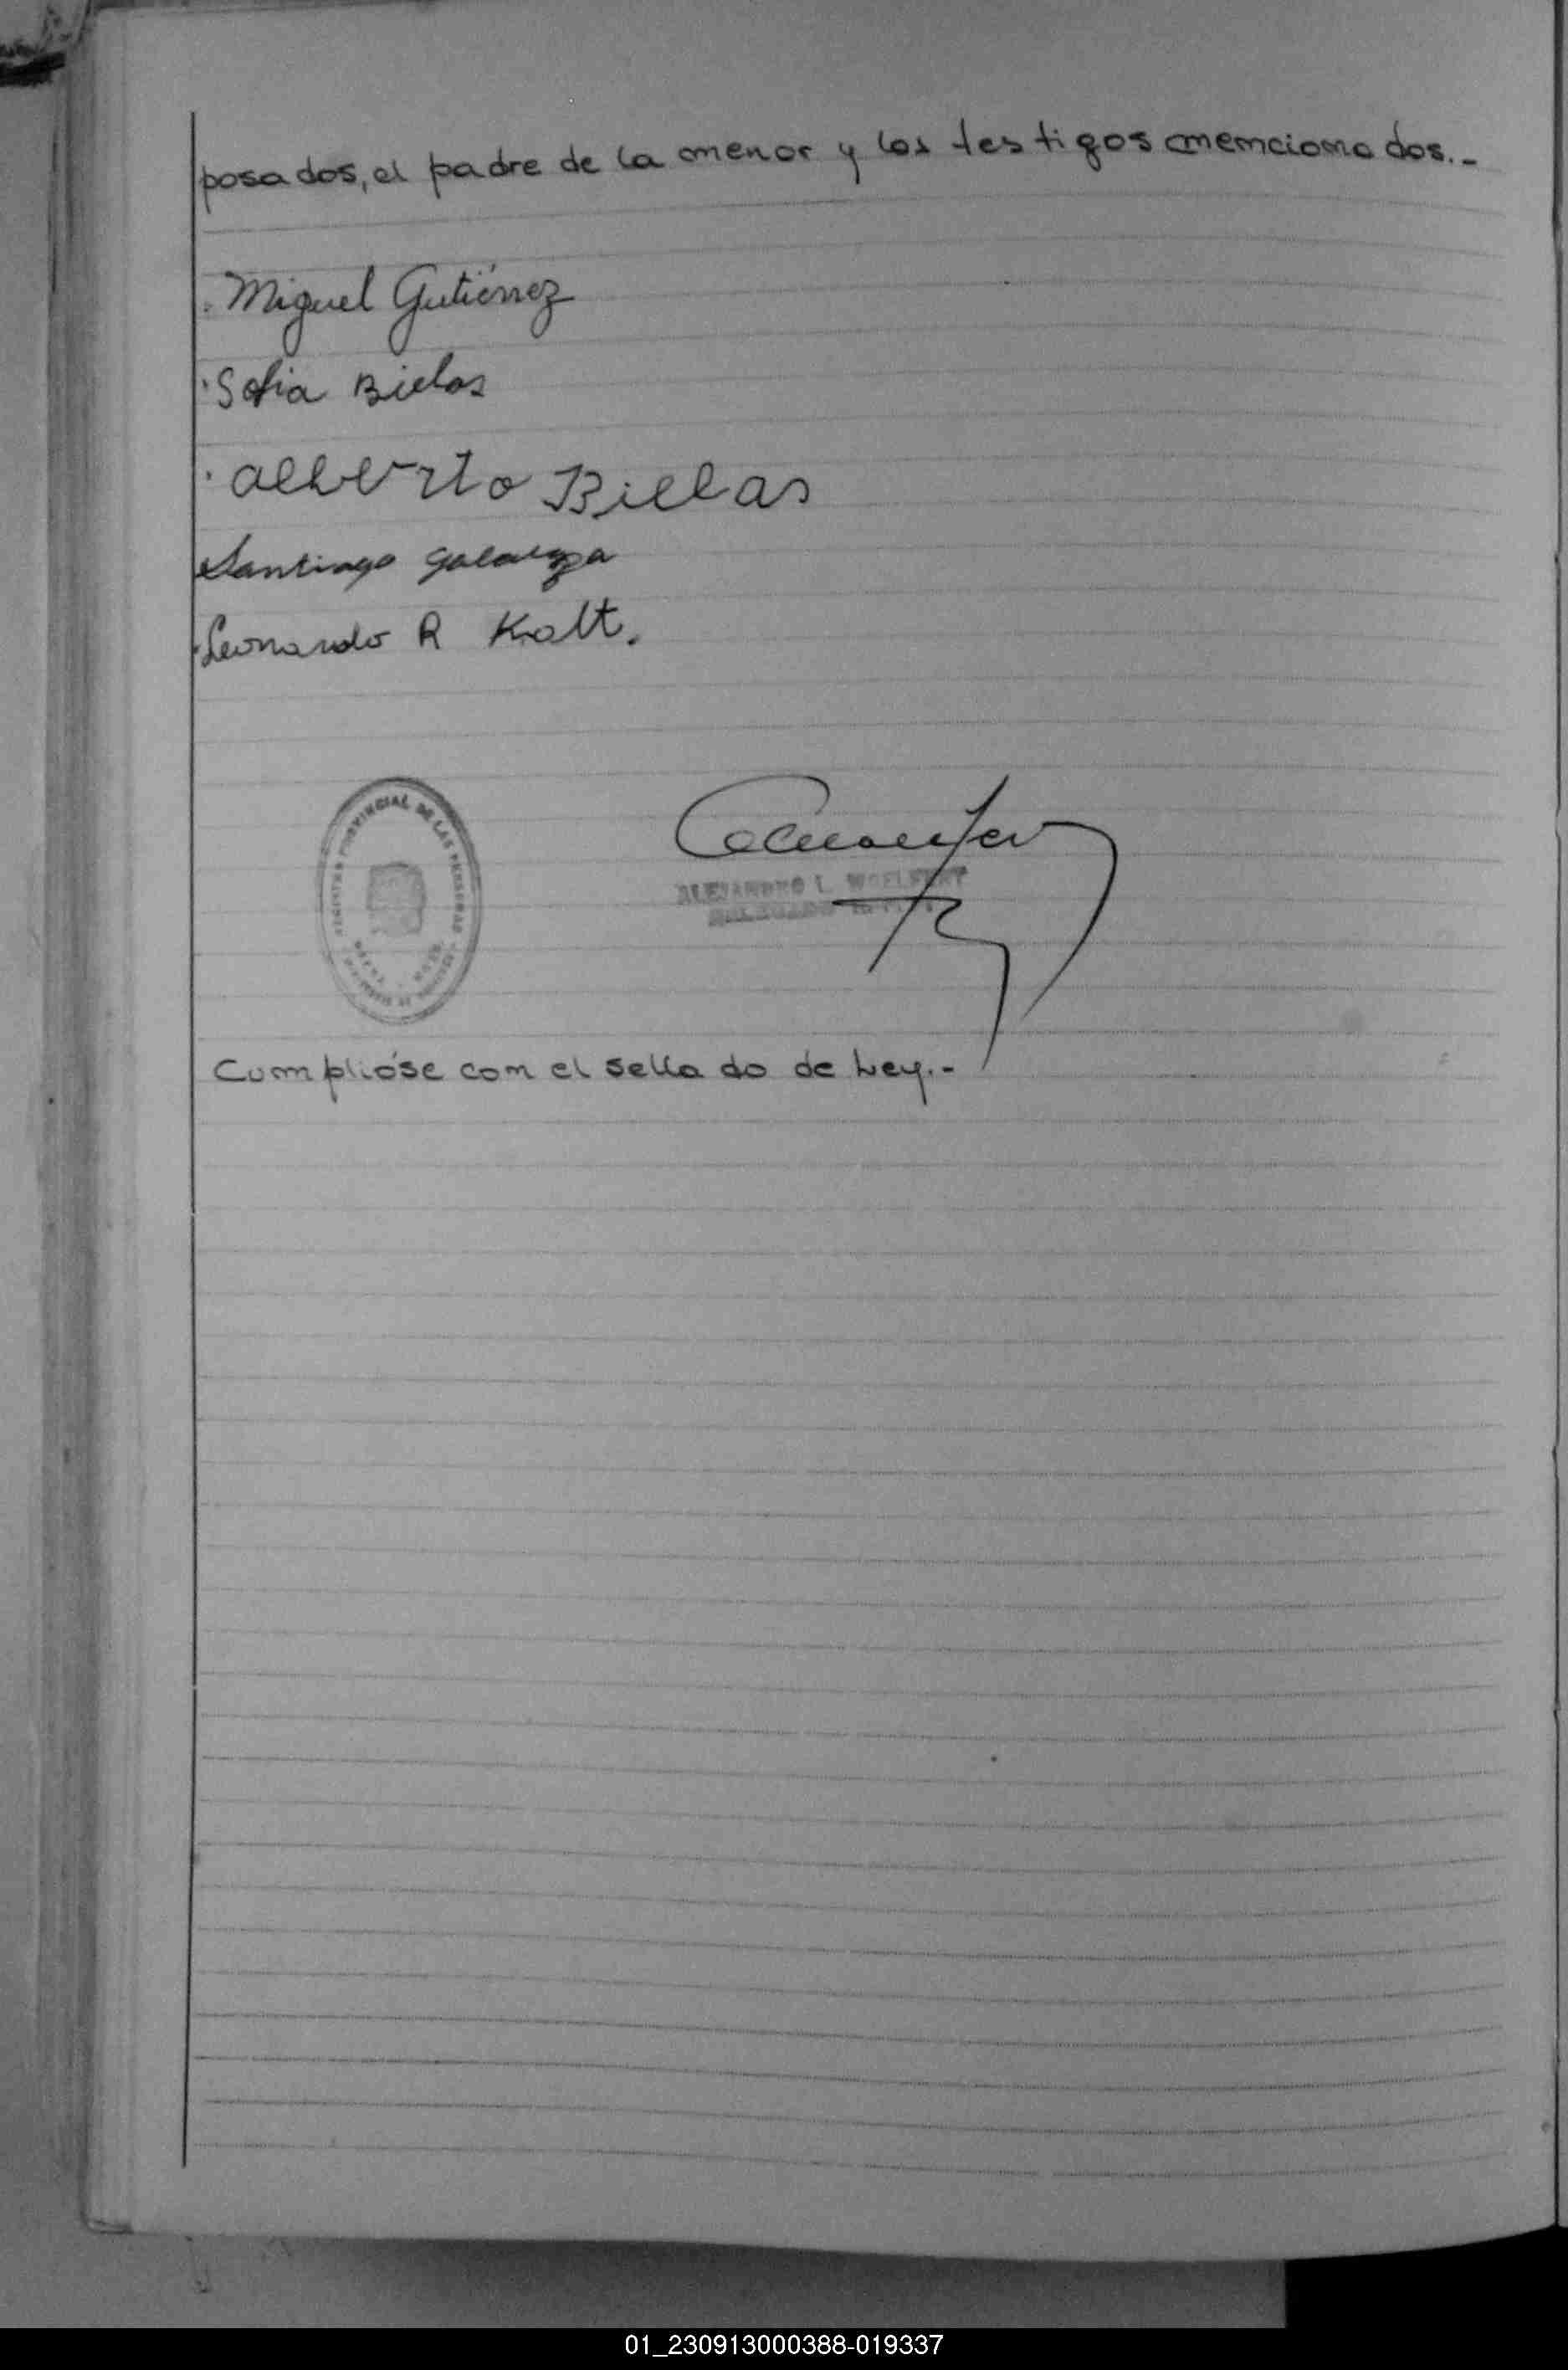 posados, el padre de la menor y los testigos mencionados.-
Miguel Gutiérrez
Sofia Bielas
Alberto Bielas
Santiago Galarza
Leonardo R Kalt.
PROVINCIAL DE LAS PERSONAS
ALEJANDRO L. WOELFERT
DELEGADO
Cumplióse con el sellado de Ley.-
01_230913000388-019337